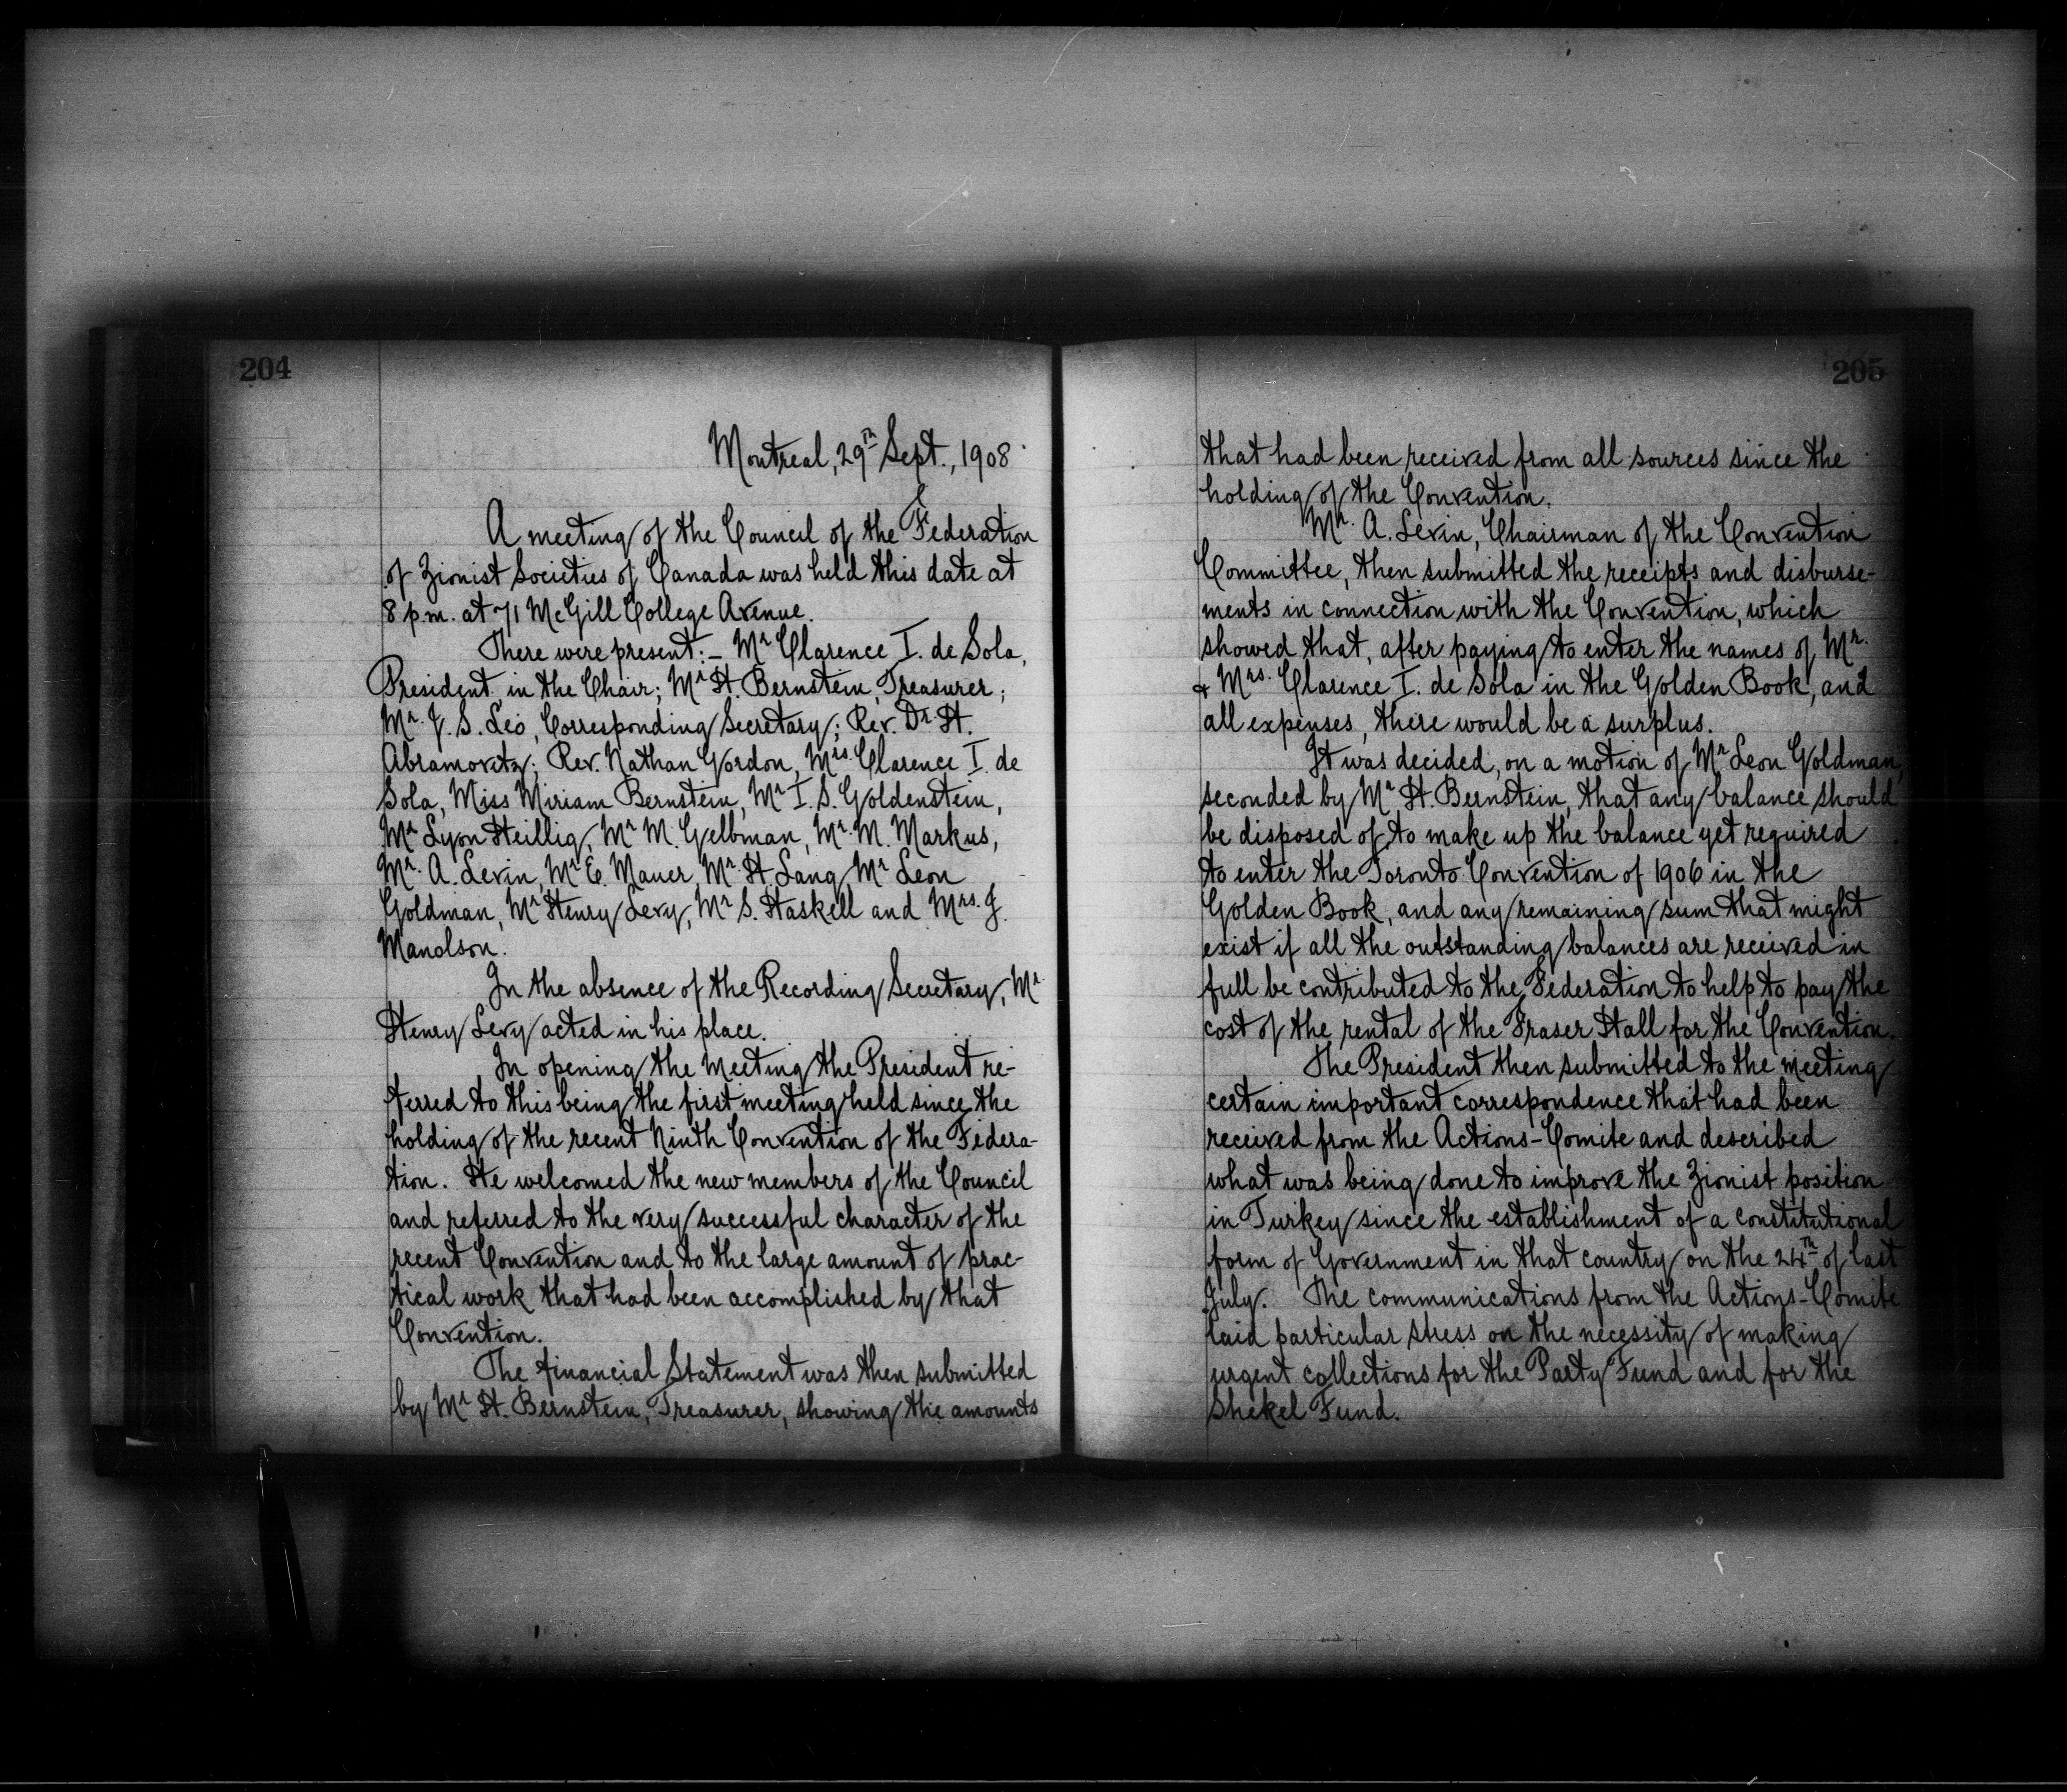 204
Montreal, 29th Sept., 1908
A meeting of the Council of the Federation
of Zionist Societies of Canada was held this date at
8 p.m. at 71 McGill College Avenue.
There were present:— Mr Clarence I. de Sola,
President in the Chair; Mr H. Bernstein, Treasurer;
Mr. J. S. Leo, Corresponding Secretary; Rev. Dr. H.
Abramovitz; Rev. Nathan Gordon, Mrs. Clarence I. de
Sola, Miss Miriam Bernstein, Mr I. S. Goldenstein,
Mr Lyon Heillig, Mr M. Gelbman, Mr. M. Markus,
Mr. A. Levin, Mr E. Mauer, Mr. H. Lang, Mr Leon
Goldman, Mr Henry Levy, Mr S. Haskell and Mrs. J.
Manolson.
In the absence of the Recording Secretary, Mr
Henry Levy acted in his place.
In opening the meeting the President re-
ferred to this being the first meeting held since the
holding of the recent Ninth Convention of the Federa-
tion. He welcomed the new members of the Council
and referred to the very successful character of the
recent Convention and to the large amount of prac-
tical work that had been accomplished by that
Convention.
The financial Statement was then submitted
by Mr H. Bernstein, Treasurer, showing the amounts
205
that had been received from all sources since the
holding of the Convention.
Mr. A. Levin, Chairman of the Convention
Committee, then submitted the receipts and disburse-
ments in connection with the Convention, which
showed that, after paying to enter the names of Mr.
& Mrs. Clarence I. de Sola in the Golden Book, and
all expenses, there would be a surplus.
It was decided, on a motion of Mr Leon Goldman,
seconded by Mr H. Bernstein, that any balance should
be disposed of to make up the balance yet required
to enter the Toronto Convention of 1906 in the
Golden Book, and any remaining sum that might
exist if all the outstanding balances are received in
full be contributed to the Federation to help to pay the
cost of the rental of the Fraser Hall for the Convention.
The President then submitted to the meeting
certain important correspondence that had been
received from the Actions-Comite and described
what was being done to improve the Zionist position
in Turkey since the establishment of a constitutional
form of Government in that country on the 24th of last
July. The communications from the Actions-Comite
laid particular stress on the necessity of making
urgent collections for the Party Fund and for the
Shekel Fund.